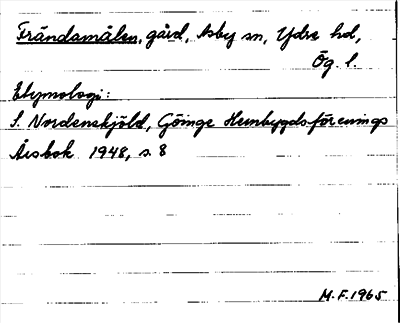 Frändamålen, gård, Asby sn, Ydre hd,
Ög. l.
Etymologi:
S. Nordenskjöld, Göinge Hembygdsförenings
Årsbok 1948, s. 8
M.F. 1965